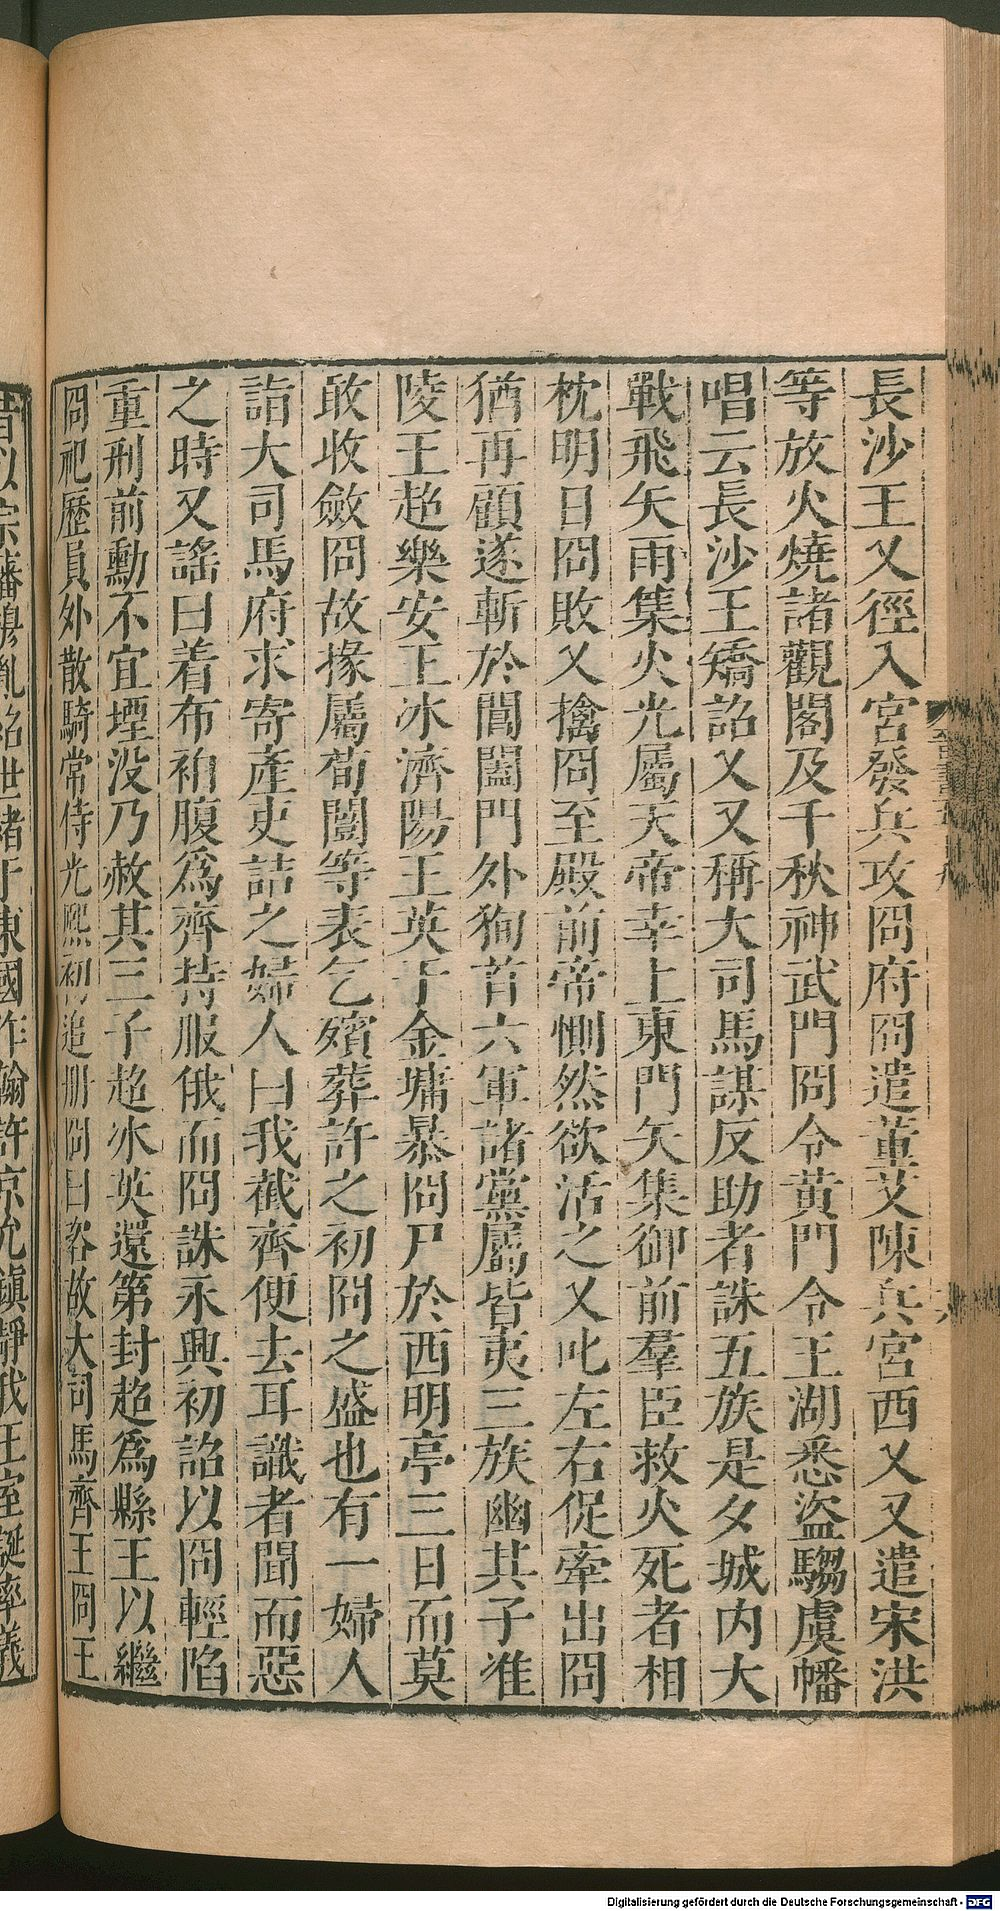 長沙王乂徑入宮發兵攻冏府冏遣董艾陳兵宮西乂又遣宋洪
等放火燒諸觀閣及千秋神武門冏令黃門令王湖悉盜騶虞幡
唱云長沙王矯詔乂又稱大司馬謀反助者誅五族是夕城內大
戰飛矢雨集火光屬天帝幸上東門矢集御前羣臣救火死者相
枕明日冏敗乂擒冏至殿前帝惻然欲活之乂叱左右促牽出冏
猶再顧遂斬於閶闔門外徇首六軍諸黨屬皆夷三族幽其子淮
陵王超樂安王冰濟陽王英于金墉暴冏尸於西明亭三日而莫
敢收斂冏故掾屬荀闓等表乞殯葬許之初冏之盛也有一婦人
詣大司馬府求寄產吏詰之婦人曰我截齊便去耳識者聞而惡
之時又謠曰着布袹腹爲齊持服俄而冏誅永興初詔以冏輕陷
重刑前勳不宜堙没乃赦其三子超冰英還第封超爲縣王以繼
冏祀歷員外散騎常侍光熙初追册冏曰咨故大司馬齊王冏王
昔以宗藩穆胤紹世緒于東國作翰許京允鎮靜我王室誕率義
Digitalisierung gefördert durch die Deutsche Forschungsgemeinschaft - DFG